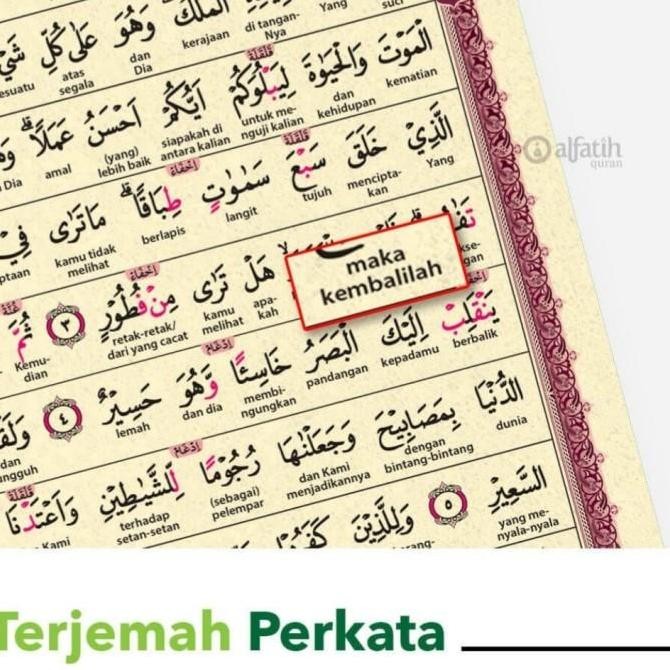 الْمُلْكُ وَهُوَ عَلٰى كُلِّ
kerajaan di tangan-Nya Yang suci
esuatu atas segala dan Dia
الْمَوْتَ وَالْحَيٰوةَ لِيَبْلُوَكُمْ اَيُّكُمْ اَحْسَنُ عَمَلًاۗ
قلقلة
kematian dan kehidupan untuk me-nguji kalian siapakah di antara kalian (yang) lebih baik amal Dia
الَّذِيْ خَلَقَ سَبْعَ سَمٰوٰتٍ طِبَاقًاۗ مَا تَرٰى فِيْ
قلقلة
اخفاء
Yang mencipta-kan tujuh langit berlapis kamu tidak melihat ptaan
هَلْ تَرٰى مِنْ فُطُوْرٍ ٣ ثُمَّ
اخفاء
kse-gan
apa-kah kamu melihat retak-retak/dari yang cacat Kemu-dian
maka
kembalilah
يَنْقَلِبْ اِلَيْكَ الْبَصَرُ خَاسِئًا وَّهُوَ حَسِيْرٌ ٤
ادغام
berbalik kepadamu pandangan membi-ngungkan dan dia lemah dan ngguh
الدُّنْيَا بِمَصَابِيْحَ وَجَعَلْنٰهَا رُجُوْمًا لِّلشَّيٰطِيْنِ وَاَعْتَدْنَا
ادغام
قلقلة
dunia dengan bintang-bintang dan Kami menjadikannya (sebagai) pelempar terhadap setan-setan Kami
السَّعِيْرِ ٥ وَلِلَّذِيْنَ
yang me-nyala-nyala
alfatih
quran
Terjemah Perkata